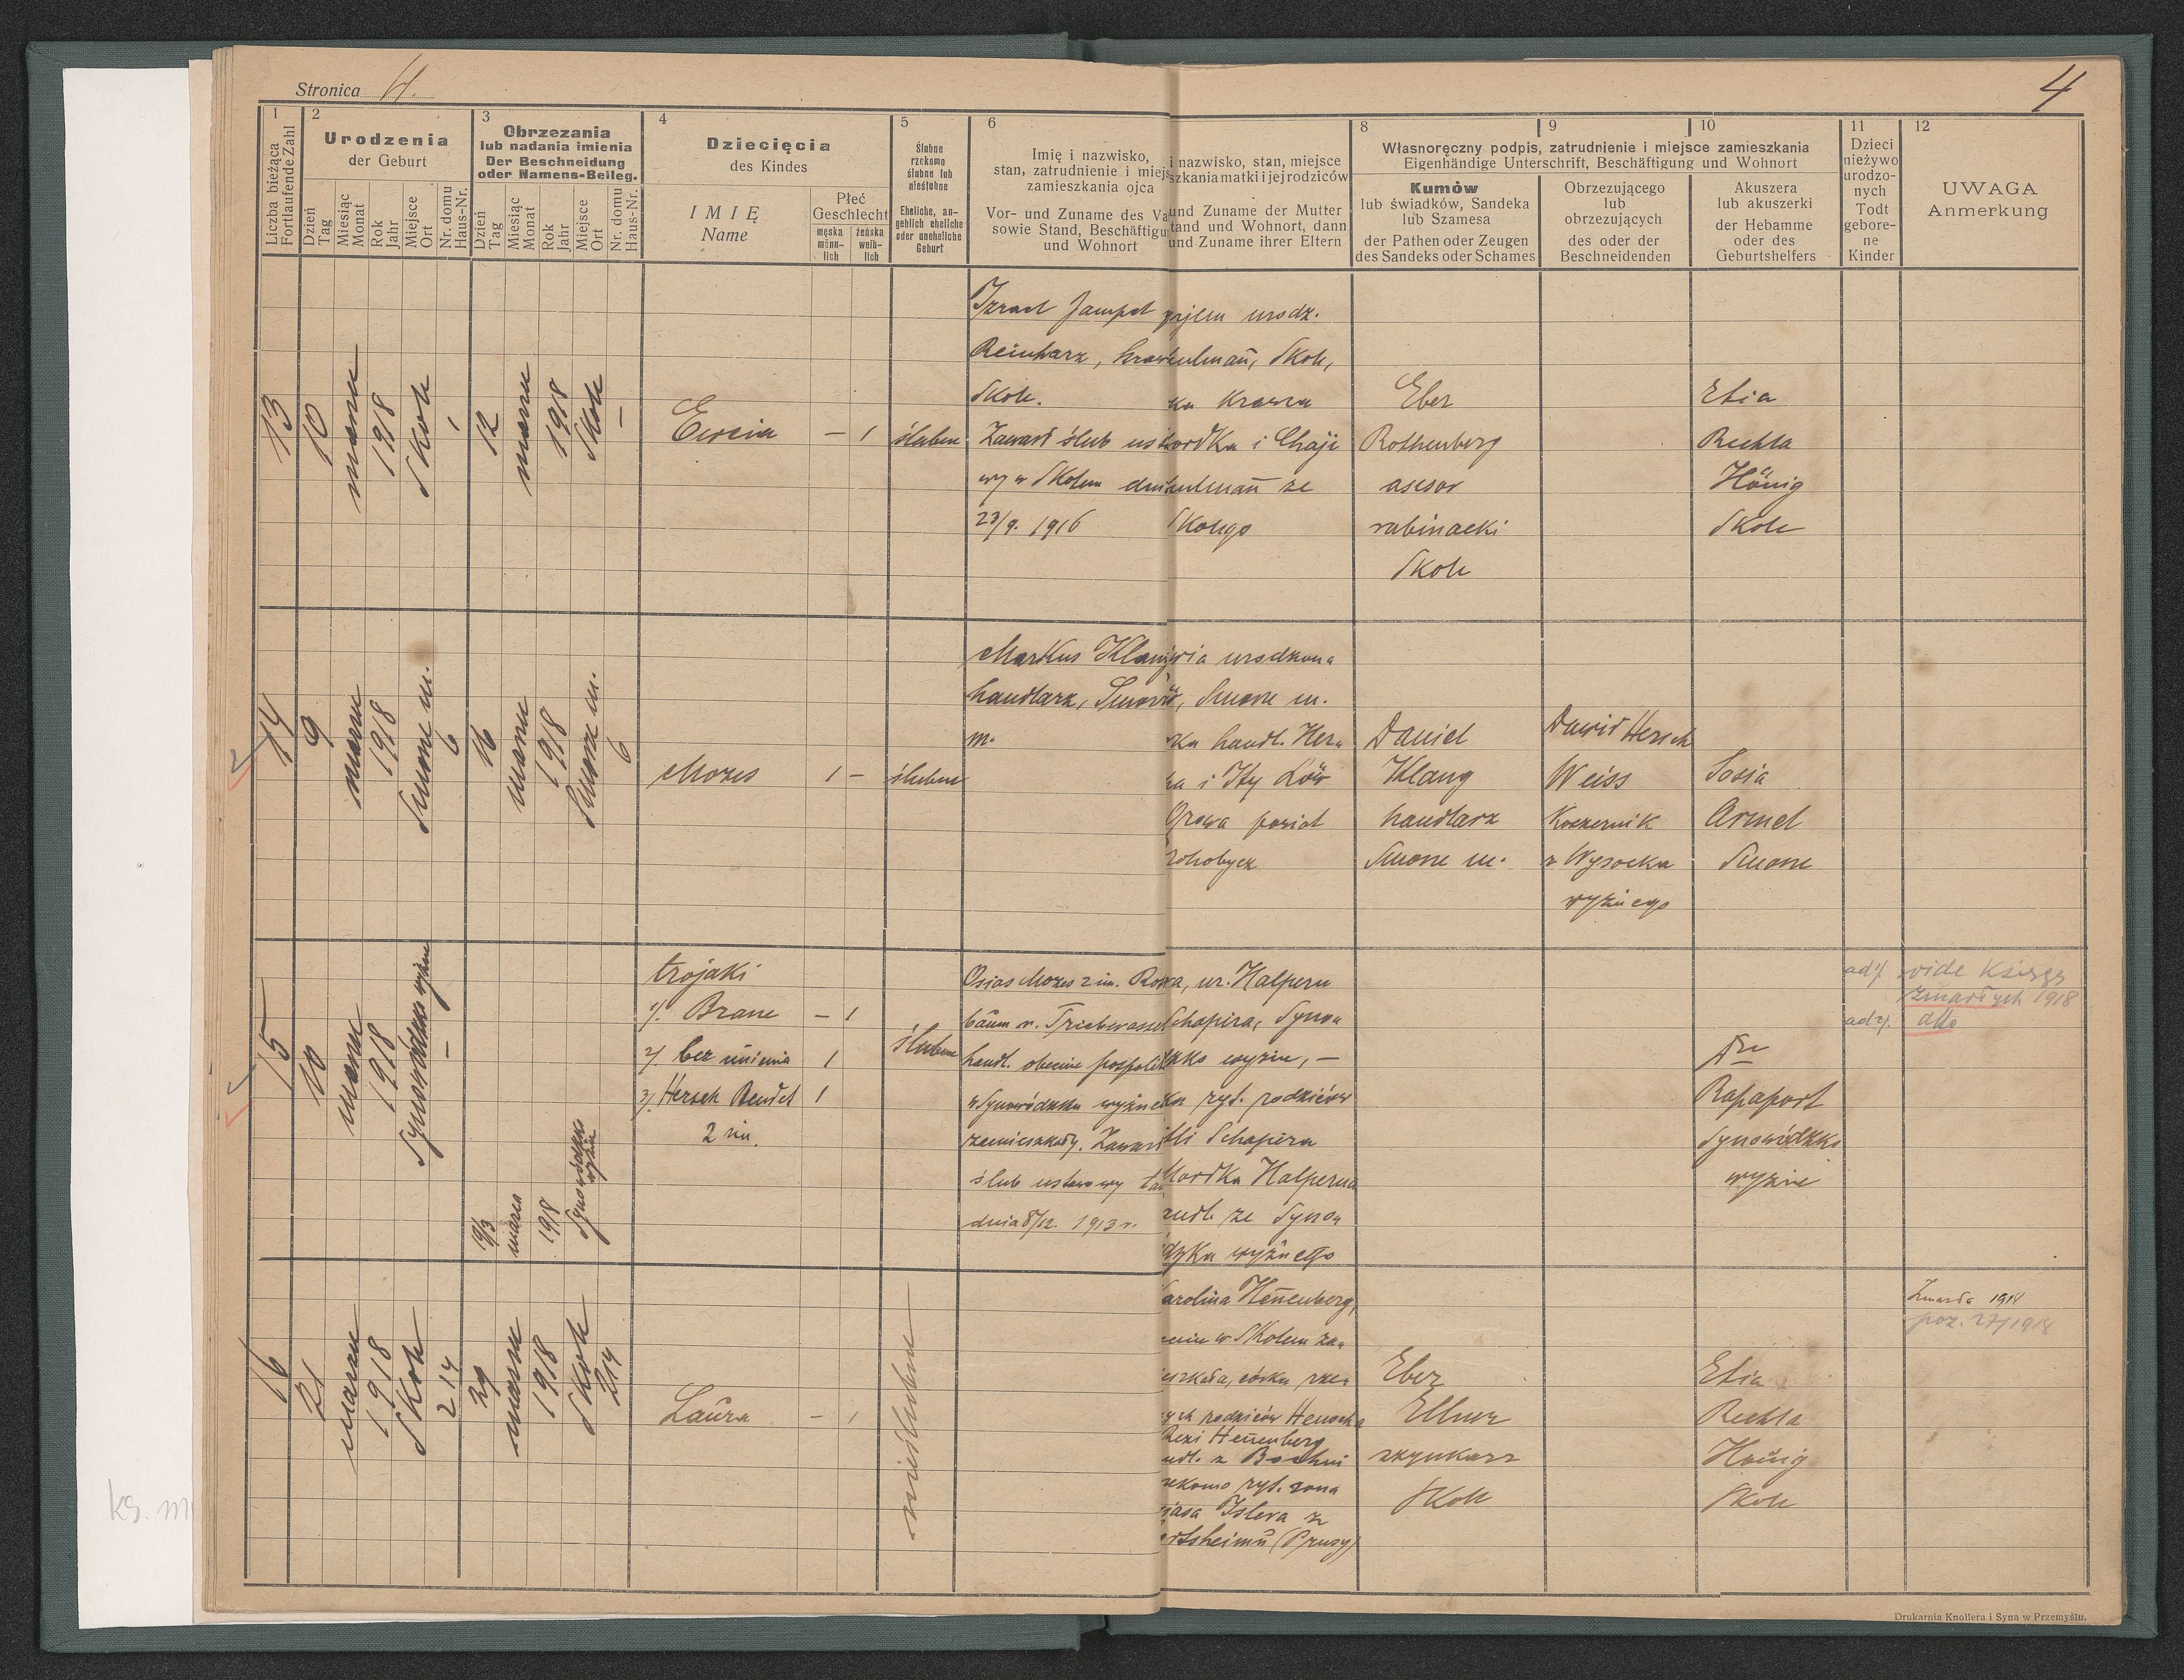 Stronica 4.
4
1
Liczba bieżąca
Fortlaufende Zahl
2
Urodzenia
der Geburt
Dzień
Tag
Miesiąc
Monat
Rok
Jahr
Miejsce
Ort
Nr. domu
Haus-Nr.
3
Obrzezania
lub nadania imienia
Der Beschneidung
oder Namens-Beileg.
Dzień
Tag
Miesiąc
Monat
Rok
Jahr
Miejsce
Ort
Nr. domu
Haus-Nr.
4
Dziecięcia
des Kindes
IMIĘ
Name
Płeć
Geschlecht
męska
männ-
lich
żeńska
weib-
lich
5
Ślubne
rzekomo
ślubne lub
nieślubne
Eheliche, an-
geblich eheliche
oder uneheliche
Geburt
6
Imię i nazwisko,
stan, zatrudnienie i miejs
zamieszkania ojca
Vor- und Zuname des Va
sowie Stand, Beschäftigu
und Wohnort
i nazwisko, stan, miejsce
szkania matki i jej rodziców
und Zuname der Mutter
tand und Wohnort, dann
und Zuname ihrer Eltern
8
9
10
Własnoręczny podpis, zatrudnienie i miejsce zamieszkania
Eigenhändige Unterschrift, Beschäftigung und Wohnort
Kumów
lub świadków, Sandeka
lub Szamesa
der Pathen oder Zeugen
des Sandeks oder Schames
Obrzezującego
lub
obrzezujących
des oder der
Beschneidenden
Akuszera
lub akuszerki
der Hebamme
oder des
Geburtshelfers
11
Dzieci
nieżywo
urodzo-
nych
Todt
gebore-
ne
Kinder
12
UWAGA
Anmerkung
13
10
marca
1918
Skole
12
marca
1918
Skole
–
– 1
ślubne
Izrael Jampel
Reinharz,
Skole.
Zawarł ślub
wy w Skolem
23/9. 1916
urodz.
Skole,
ka Krawca
ordka i Chaji
ulman ze
Skolego
Eber
Rothenberg
asesor
rabinacki
Skole
Etia
Rechla
Hönig
Skole
14
9
marca
1918
Smorze m.
6
16
marca
1918
Smorze m.
6
Mozes
1 –
ślubne
Markus Klang
handlarz,
m.
urodzona
Smorze m.
handl.
i Ity
Orowa powiat
rohobycz
Daniel
Klang
handlarz
Smorze m.
Dawid Hersch
Weiss
z Wysocka
wyżnego
Sosia
Armel
Smorze
15
10
marca
1918
Synowódzko wyżne
–
marca
1918
Synowódzko
wyżne
trojaki
1/. Brane – 1
2/. bez imienia 1
3/. Hersch Bendet 1
2 im.
ślubne
Osias Mozes 2 im.
handl. obecnie
w Synowódzku
zamieszkały.
ślub ustawowy
dnia 8/12. 1913 r.
ur. Halpern
Schapira, Syno
zko wyżne, –
ryt. rodziców
Schapira
Mordka Halperna
ze Syno
dzka wyżnego
Dr
Rapaport
Synowódzko
wyżne
ad 1/. vide księgę
zmarłych 1918
ad 2/. dtto
16
21
marca
1918
Skole
214
29
marca
1918
Skole
214
Laura
– 1
nieślubne
arolina Hennenberg,
w Skolem za
szkała, córka rze
ych rodziców Henocha
Rezi Hennenberg
z Bochni
zekomo ryt. żona
Islera z
(Prusy)
Eber
Ellner
szynkarz
Skole
Etia
Rechla
Hönig
Skole
Zmarła 1918
poz. 27/1918
ks.
Drukarnia Knollera i Syna w Przemyślu.